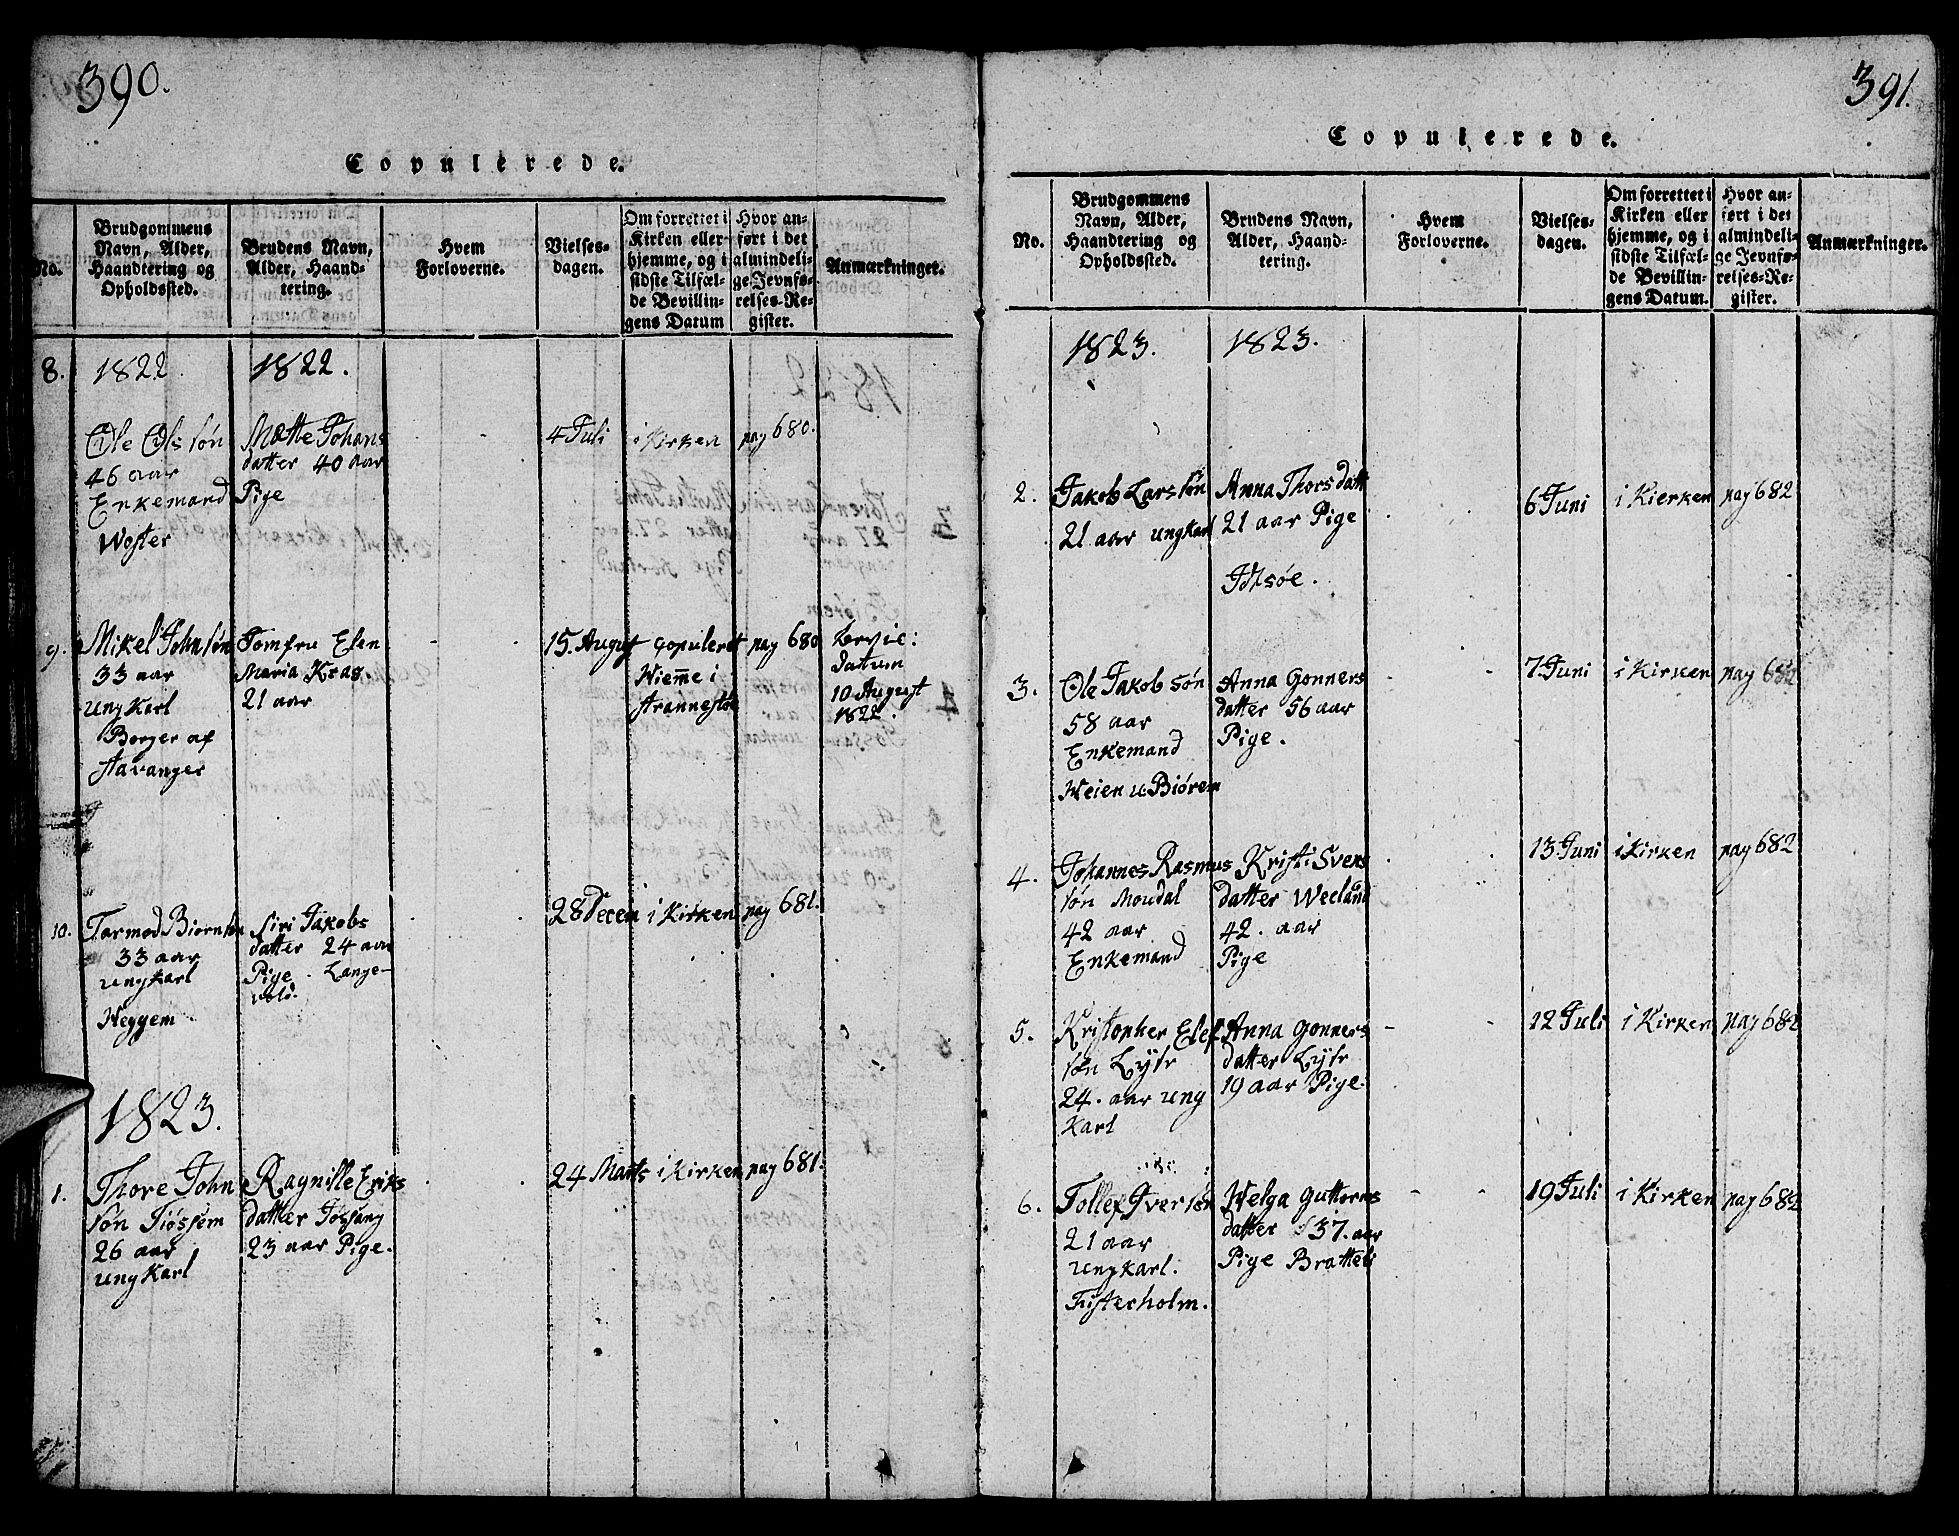 390.
Copulerede.
No.
Brudgommens
Navn, Alder,
Haandtering og
Opholdssted.
Brudens Navn,
Alder, Haand-
tering.
Hvem
Forloverne.
Vielses-
dagen.
Om forrettet i
Kirken eller
hjemme, og i
sidste Tilfæl-
de Bevillin-
gens Datum
Hvor an-
ført i det
almindeli-
ge Jevnfø-
relses-Re-
gister.
Anmærkninger.
8. 1822 1822.
Ole Ols søn
46 aar
Enkemand
Woster
Mætte Johans
datter 40 aar
Pige
4 Juli
i Kirken
pag 680.
9.
Mikel John søn
33 aar
ung Karl
Borger af
Stavanger
Jomfru Elen
Maria Krag
21 aar
15. August
copuleret
Hiemme i
pag 680
datum
10 August
1822.
10.
Tarmod Biørnsøn
33 aar
ungkarl
Heggem
Siri Jakobs
datter 24 aar
Pige. Lange-
vold.
28 Decem
i Kirken
pag 681.
1823.
1.
Thore John
søn Tiøssem
26 aar
ung Karl
Ragnille Eriks
datter Tøssang
23 aar Pige.
24 Marts
i Kirken
pag 681.
391.
Copulerede.
No.
Brudgommens
Navn, Alder,
Haandtering og
Opholdssted.
Brudens Navn,
Alder, Haand-
tering.
Hvem
Forloverne.
Vielses-
dagen.
Om forrettet i
Kirken eller
hjemme, og i
sidste Tilfæl-
de Bevillin-
gens Datum.
Hvor an-
ført i det
almindeli-
ge Jevnfø-
relses-Re-
gister.
Anmærkninger.
1823. 1823.
2.
Jakob Lars søn
21 aar ungkarl
Anna Thors datt
21 aar Pige
Idsøe.
6 Juni
i Kierken
pag 682
3.
Ole Jakob søn
58 aar
Enkemand
Heien u. Biørem
Anna Gonners
datter 56 aar
Pige.
7 Juni
i Kirken
pag 682
4.
Johannes Rasmus
søn Moudal
42 aar
Enkemand
Kristi Svens
datter Weeland
42. aar
Pige
13 Juni
i Kirken
pag 682
5.
Kristopher Elef
søn Lysr
24. aar ung
Karl
Anna Gonners
datter Lysr
19 aar Pige.
12 Juli
i Kirken
pag 682
6.
Tollef Iver søn
21 aar
ungkarl.
Fisterholm.
Helga Guttorms
datter 37. aar
Pige Bratteli
19 Juli
i Kirken
pag 682